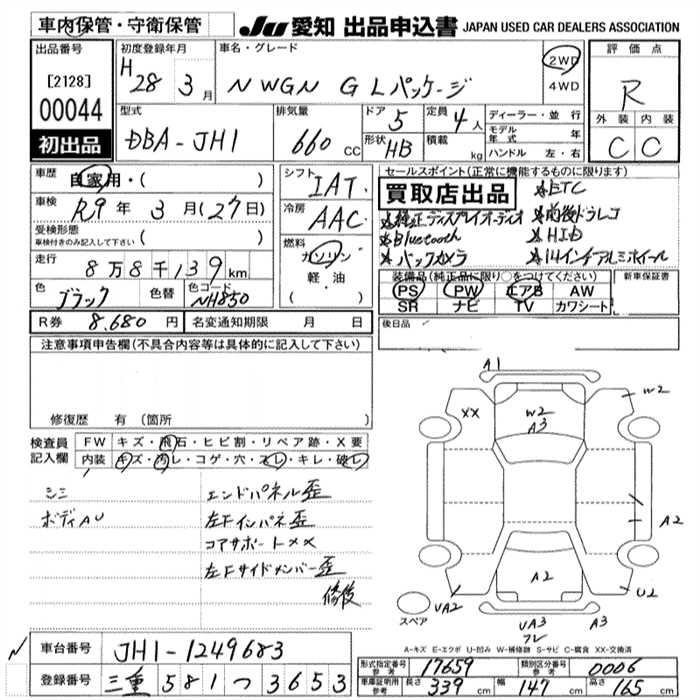 車内保管・守衛保管
JU 愛知 出品申込書 JAPAN USED CAR DEALERS ASSOCIATION
出品番号
[2128]
00044
初出品
初度登録年月
H 28年 3月
車名・グレード
N WGN G Lパッケージ
2WD
4WD
評価点
R
外装 内装
C C
型式
DBA-JH1
排気量
660 CC
ドア 5
形状 HB
定員 4人
積載 kg
ディーラー・並行
モデル年式 年
ハンドル 左・右
車歴
自家用・( )
車検
R9年 3月(27日)
受検形態
車検付きのみ記入して下さい ( )
走行
8万8千139km
色
ブラック
色替
色コード
NH850
シフト
IAT.
冷房
AAC
燃料
ガソリン
軽油
( )
セールスポイント(正常に機能するものに限ります)
買取店出品
☆純正ディスプレイオーディオ
☆Bluetooth
☆バックカメラ
☆ETC
☆前後ドラレコ
☆HID
☆14インチアルミホイール
装備品(純正品に限り○をつけてください)
PS PW エアB AW
SR ナビ TV カワシート
新車保証書
後日品
R券 8.680円
名変通知期限 月 日
注意事項申告欄(不具合内容等は具体的に記入して下さい)
修復歴 有(箇所
検査員記入欄
FW キズ・飛石・ヒビ割・リペア跡・X要
内装 キズ・汚レ・コゲ・穴・スレ・キレ・破レ
シミ
ボディAU
エンドパネル歪
左Fインパネ歪
コアサポートXX
左Fサイドメンバー歪
修復
A1
XX
W2
A3
W2
A2
A2
UA2
U2
UA3
フレ
A3
スペア
A-キズ E-エクボ U-凹み W-補修跡 S-サビ C-腐食 XX-交換済
車台番号 JH1-1249683
登録番号 三重 581 つ 3653
形式指定番号 参考 17659
類別区分番号 参考 0006
車庫証明用 参考 長さ 339 cm 幅 147 cm 高さ 165 cm